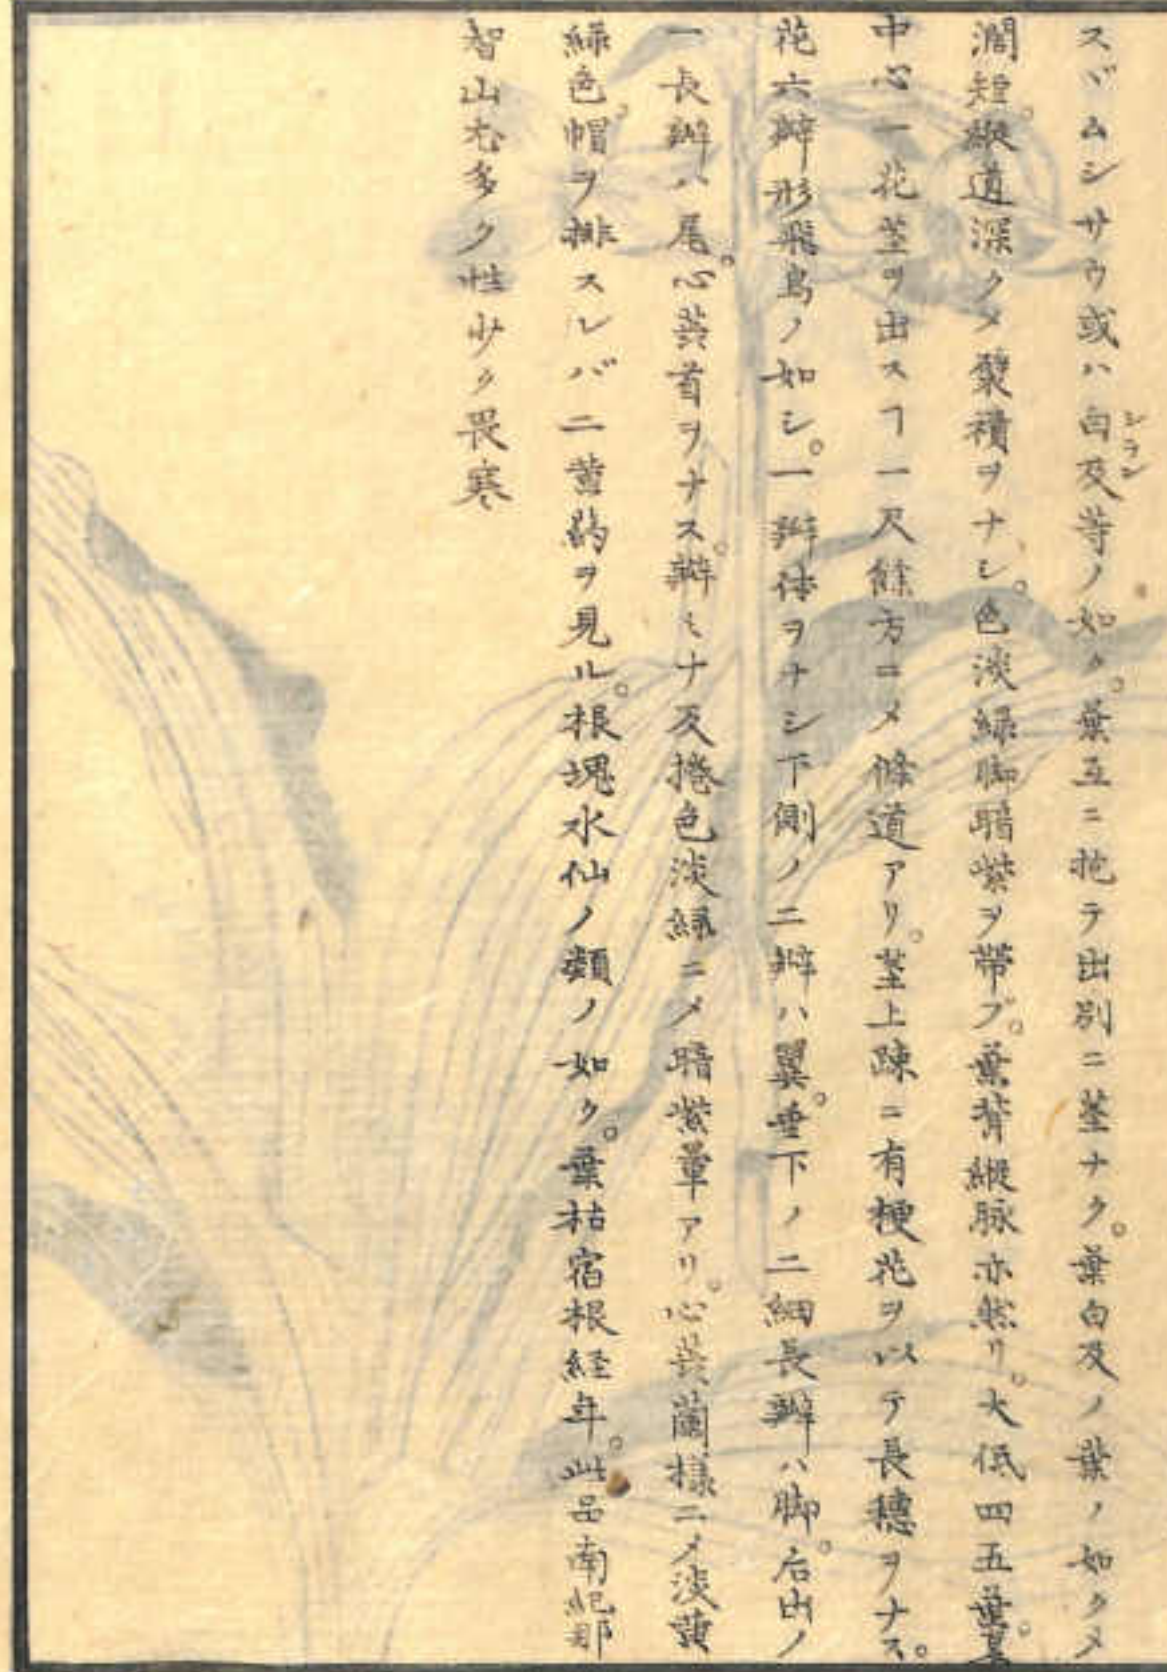 スヾムシサウ或ハ白及等ノ如ク。葉互ニ抱テ出別ニ莖ナク。葉白及ノ葉ノ如クメ
シラン
濶短。縦道深クメ襞積ヲナシ。色淡緑脚暗紫ヲ帯ブ。葉背縦脉亦然リ。大低四五葉。
中心一花莖ヲ出スヿ一尺餘方ニメ條道アリ。莖上踈ニ有梗花ヲ以テ長穗ヲナス。
花六瓣形飛鳥ノ如シ。一瓣体ヲナシ下側ノ二瓣ハ翼。垂下ノ二細長瓣ハ脚。后出ノ
一長瓣ハ尾。心蕊首ヲナス。瓣ミナ反捲色淡緑ニメ暗紫暈アリ。心蕊蘭様ニメ淡黄
緑色。帽ヲ排スレバ二黄葯ヲ見ル。根塊水仙ノ類ノ如ク。葉枯宿根経年。此品南紀那
智山尤多ク性少ク畏寒